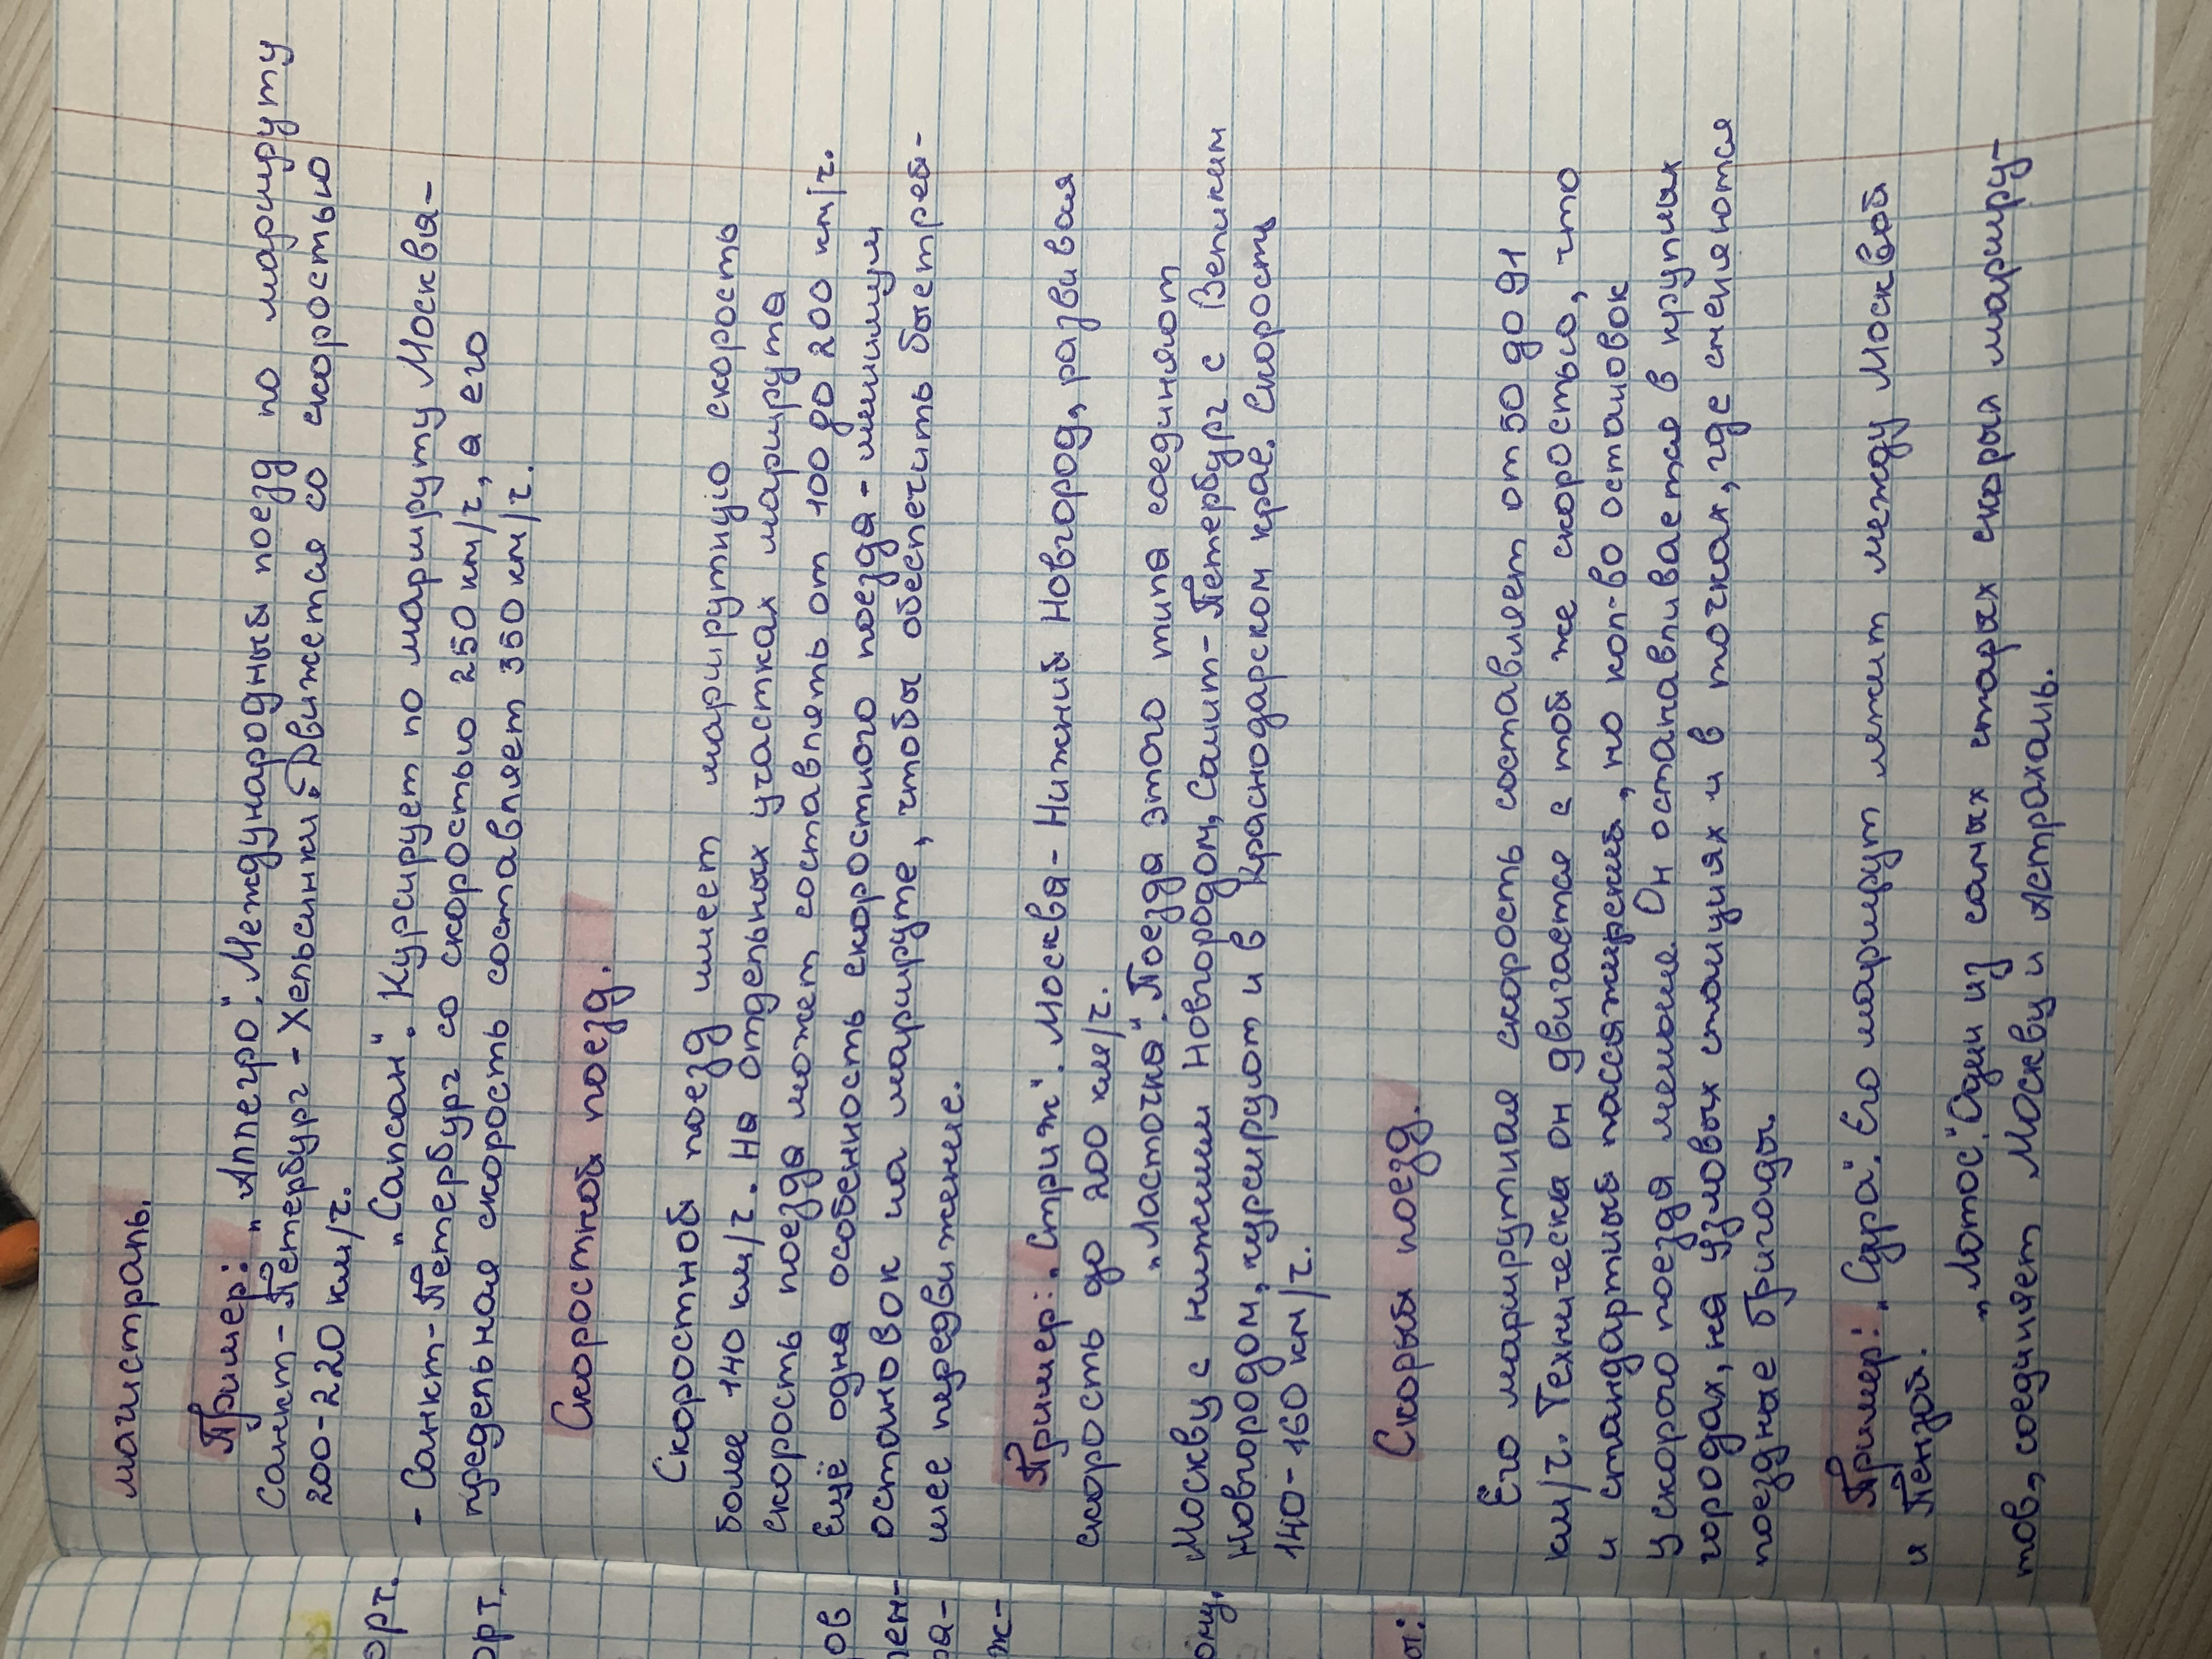 магистраль.
Пример: „Аллегро". Международный поезд по маршруту
Санкт-Петербург - Хельсинки. Движется со скоростью
200-220 км/ч.
„Сапсан". Курсирует по маршруту Москва-
- Санкт-Петербург со скоростью 250 км/ч, а его
предельная скорость составляет 350 км/ч.
Скоростной поезд.
Скоростной поезд имеет маршрутную скорость
более 140 км/ч. На отдельных участках маршрута
скорость поезда может составлять от 100 до 200 км/ч.
Ещё одна особенность скоростного поезда - минимум
остановок на маршруте, чтобы обеспечить быстрей-
шее передвижение.
Пример: „Стриж". Москва - Нижний Новгород, развивая
скорость до 200 км/ч.
„Ласточка". Поезда этого типа соединяют
Москву с нижним Новгородом, Санкт-Петербург с Великим
Новгородом, курсируют и в Краснодарском крае. Скорость
140-160 км/ч.
Скорый поезд.
Его маршрутная скорость составляет от 50 до 91
км/ч. Техническа он двигается с той же скоростью, что
и стандартный пассажирский, но кол-во остановок
у скорого поезда меньше. Он останавливается в крупных
городах, на узловых станциях и в точках, где сменяются
поездные бригады.
Пример: „Сура". Его маршрут лежит между Москвой
и Пензой.
„Лотос". Один из самых старых скорых маршру-
тов, соединяет Москву и Астрахань.
орт.
орт.
ов
лен-
ра-
ж-
ому,
ы: